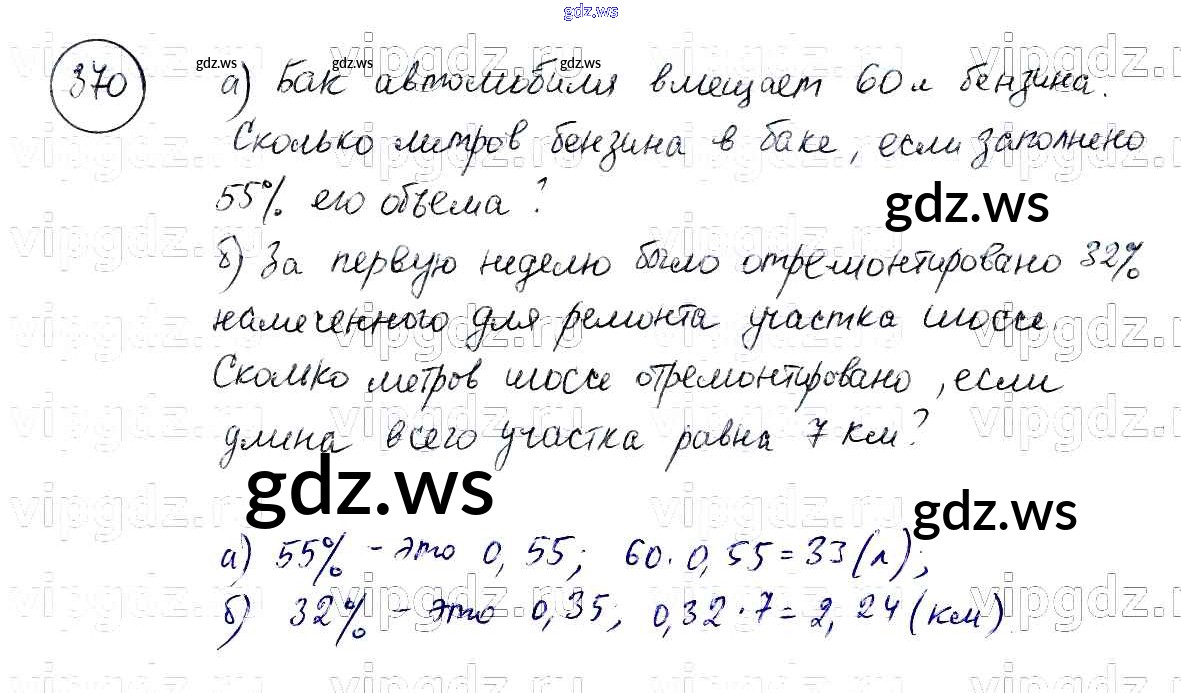 gdz.ws
370
gdz.ws gdz.ws gdz.ws
а) Бак автомобиля вмещает 60 л бензина.
Сколько литров бензина в баке, если заполнено
55% его объема?
gdz.ws
б) За первую неделю было отремонтировано 32%
намеченного для ремонта участка шоссе.
Сколько метров шоссе отремонтировано, если
длина всего участка равна 7 км?
gdz.ws
gdz.ws
а) 55% - это 0,55; 60·0,55=33(л);
б) 32% - это 0,35; 0,32·7=2,24(км)
vipgdz.ru